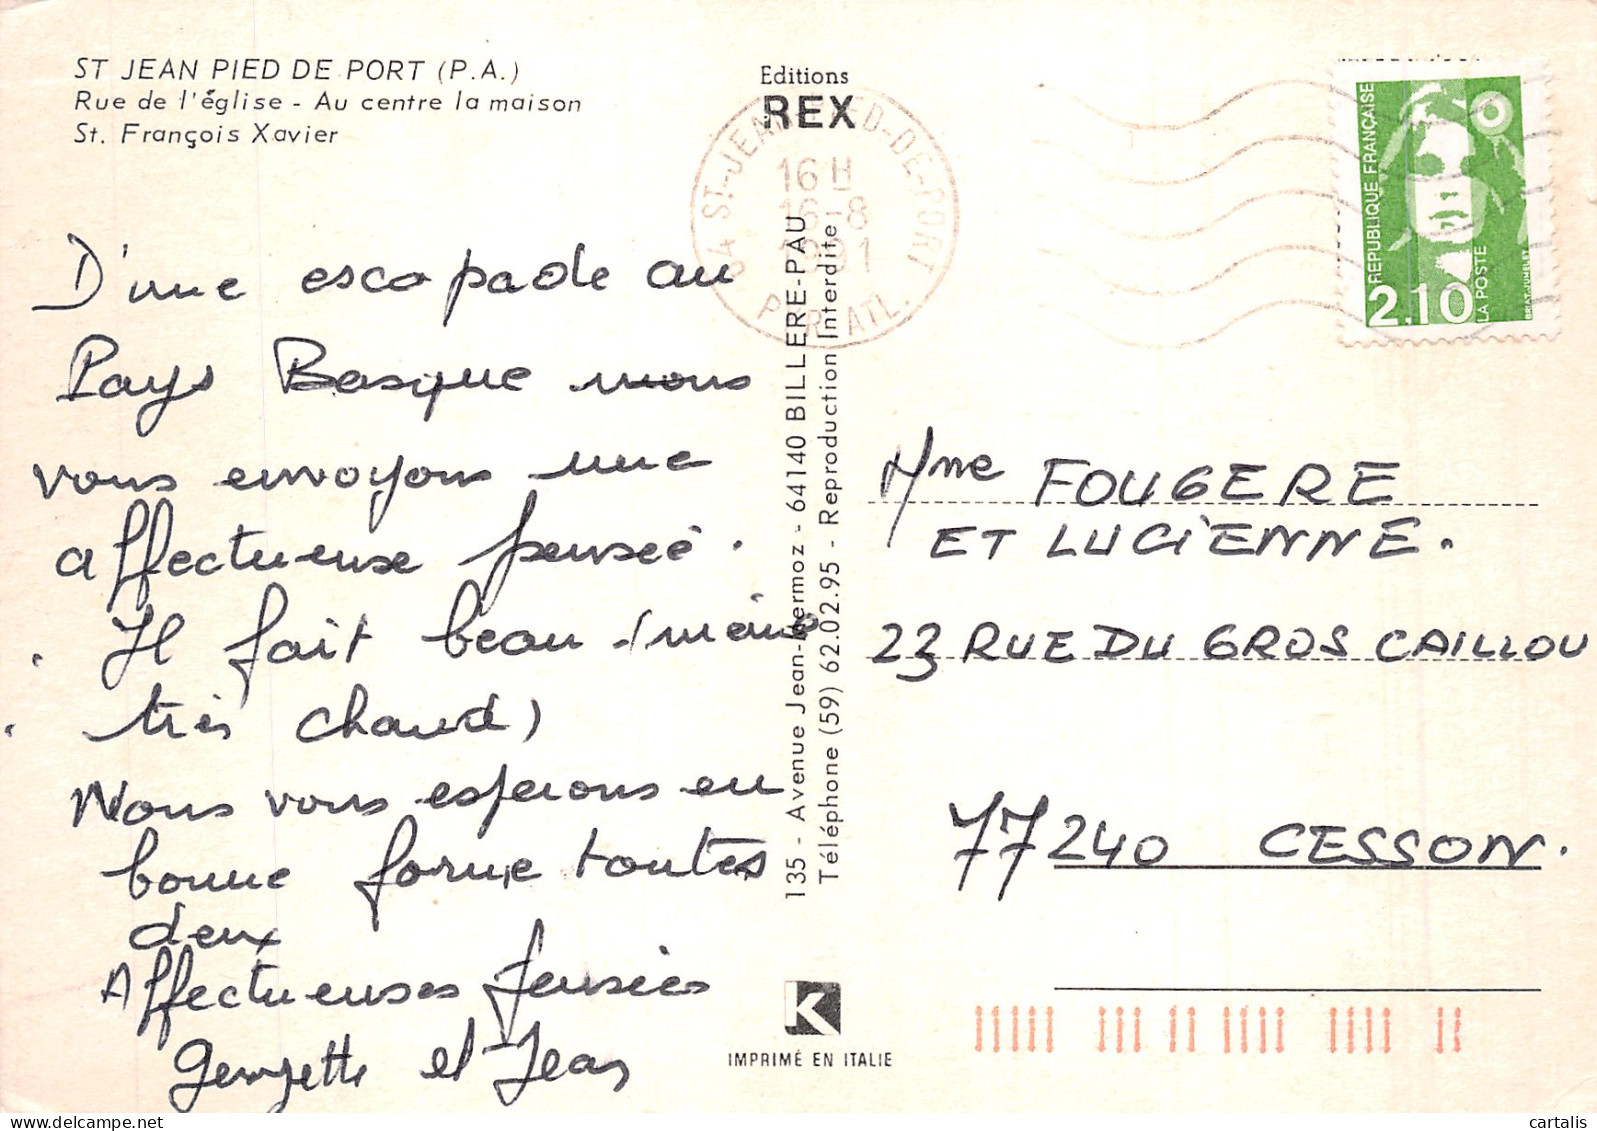 ST JEAN PIED DE PORT (P.A.)
Rue de l'église - Au centre la maison
St. François Xavier
Editions
REX
64 ST-JEAN-PIED-DE-PORT
16 H
16-8
1991
PYR. ATL.
REPUBLIQUE FRANÇAISE
2.10
LA POSTE
BRIAT-JUMELET
D'une escapade au
Pays Basque nous
vous envoyons une
affectueuse pensée.
Il fait beau (même
très chaud)
Nous vous esperons en
bonne forme toutes
deux
Affectueuses pensées
Georgette et Jean
135 - Avenue Jean-Mermoz - 64140 BILLERE-PAU
Téléphone (59) 62.02.95 - Reproduction Interdite
Mme FOUGERE
ET LUCIENNE.
23 RUE DU GROS CAILLOU
77240 CESSON.
K
IMPRIMÉ EN ITALIE
cartalis